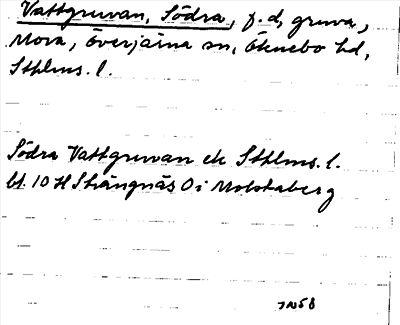 Vattgruvan, Södra, f.d. gruva,
Mora, Överjärna sn, Öknebo hd,
Sthlms. l.
Södra Vattgruvan ek Sthlms. l.
bl. 10 H Strängnäs Ö i Molstaberg
JN58